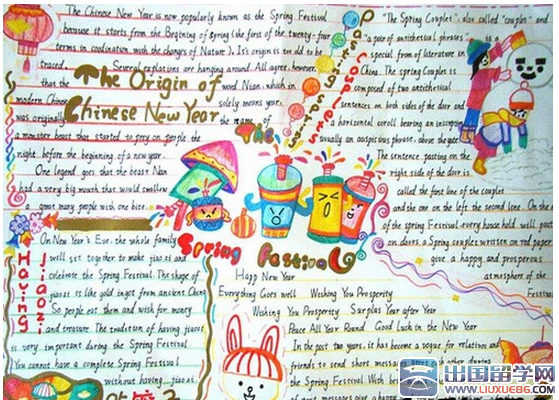 The Chinese New Year is now popularly known as the Spring Festival
because it starts from the Begining of Spring (the first of the twenty-four
terms in coodination with the changes of Nature). It's origin is too old to be
traced. Several explations are hanging around. All agree, however,
that the word Nian, which in
modern Chinese solely means year,
was originally the name of
a monster beast that started to prey on people the
night before the beginning of a new year.
One legend goes that the beast Nian
had a very big mouth that would swallow
a great many people with one bite.
The Origin of
Chinese New Year
Pasting
Couplets
"The Spring Couplets", also called "couplet" and
"a pair of antithetical phrases", is a
special from of literature in
China. The spring Couplets is
composed of two antithetical
sentences on both sides of the door and
a horizontal scroll bearing an inscription,
usually an auspicious phrase, above the gate.
The sentence pasting on the
right side of the door is
called the first line of the couplets
and the one on the left the second line. On the
of the spring Festival every house hold will past
on doors a Spring couplet written on red paper
give a happy and prosperous
atmosphere of the
Festival
The
Spring Festival
Having
jiaozi
On New Year's Eve, the whole family
will set together to make jiaozi and
celebrate the Spring Festival. The shape of
jiaozi is like gold ingot from ancient China
So people eat them and wish for money
and treasure. The tradition of having jiaozi
is very important during the Spring Festival
You cannot have a complete Spring Festival
without having jiaozi
Happ New Year
Everything Goes well Wishing You Prosperity
Wishing You Prosperity Surplus Year after Year
Peace All Year Round Good luck in the New Year
In the past two years, it has become a vogue for relatives and
friends to send short messages
the Spring Festival. With
出国留学网
WWW.LIUXUE86.COM